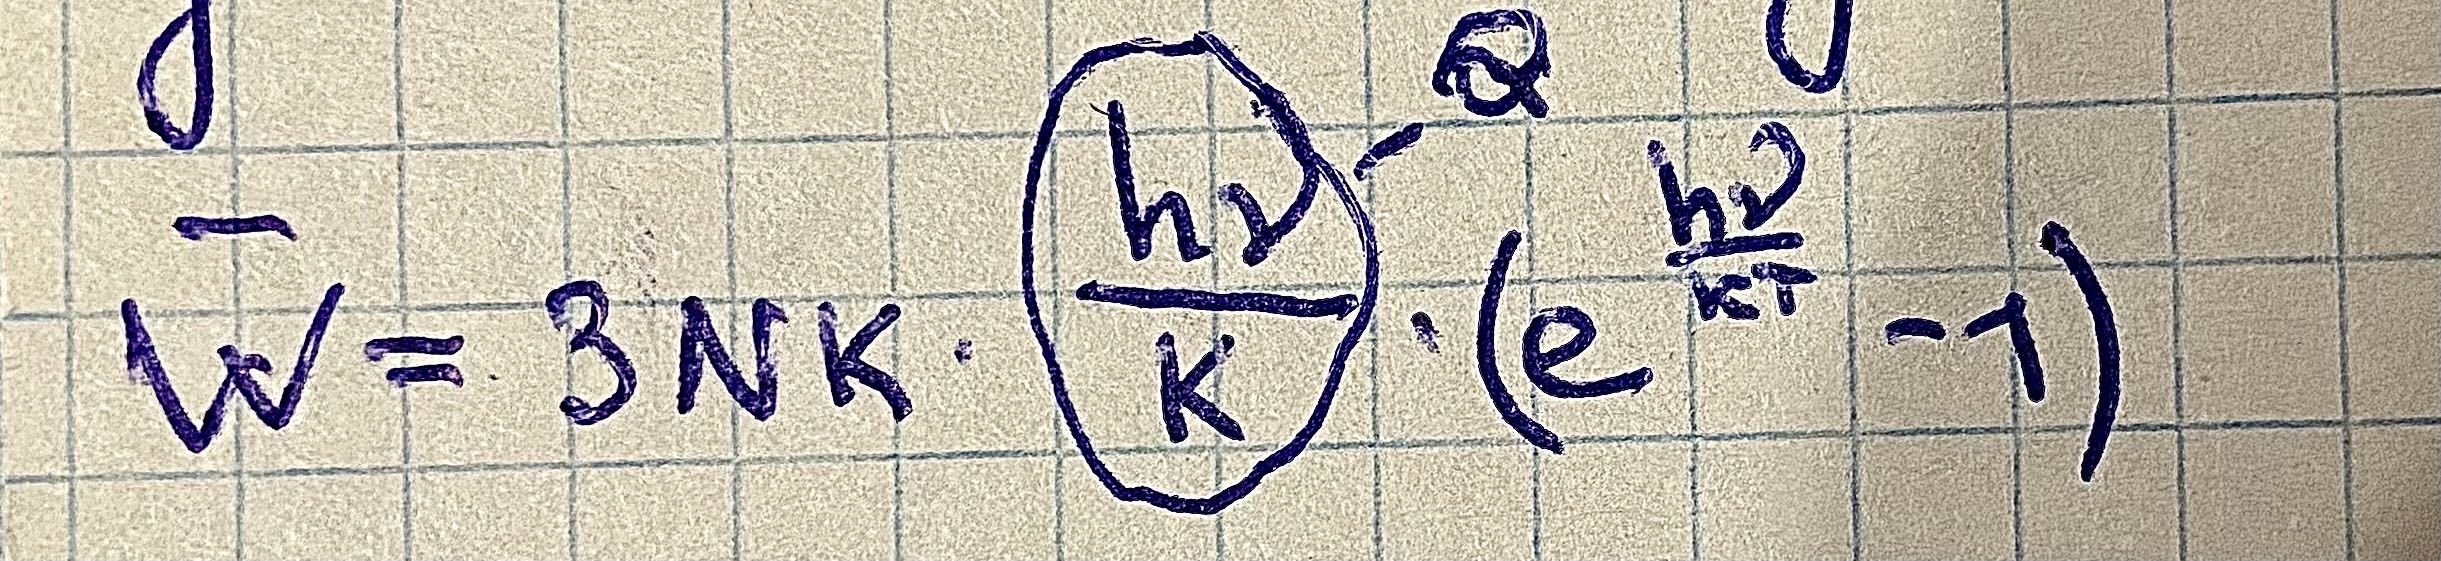 Q
W̄ = 3NK · hν/K · (e^(hν/KT) - 1)